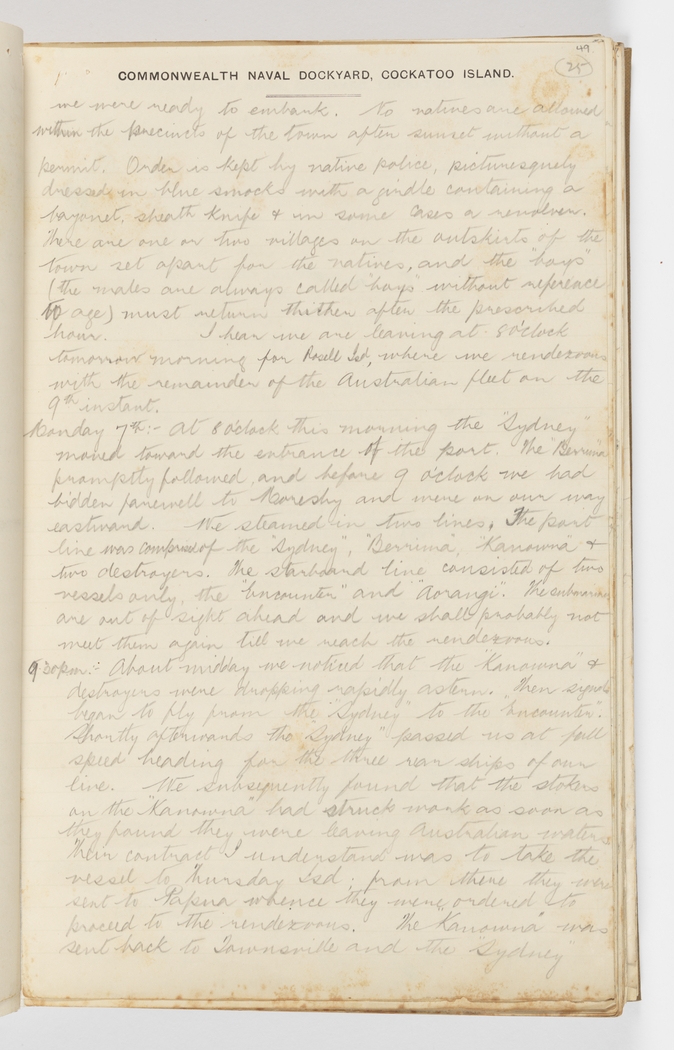 49
25
COMMONWEALTH NAVAL DOCKYARD, COCKATOO ISLAND.
we were ready to embark. No natives are allowed
within the precincts of the town after sunset without a
permit. Order is kept by native police, picturesquely
dressed in blue smocks with a girdle containing a
bayonet, sheath knife & in some cases a revolver.
There are one or two villages on the outskirts of the
town set apart for the natives, and the "boys"
(the males are always called boys without reference
to age) must return thither after the prescribed
hour. I hear we are leaving at 8 o'clock
tomorrow morning for Rosell Isd, where we rendezvous
with the remainder of the Australian fleet on the
9th instant.
Monday 7th:- At 8 o'clock this morning the "Sydney"
moved toward the entrance of the port. The "Berrima"
promptly followed, and before 9 o'clock we had
bidden farewell to Moresby and were on our way
eastward. We steamed in two lines. The port
line was comprised of the "Sydney", "Berrima", "Kanowna" &
two destroyers. The starboard line consisted of two
vessels only, the "Encounter" and "Aorangi". The submarines
are out of sight ahead and we shall probably not
meet them again till we reach the rendezvous.
9 30pm:- About midday we noticed that the "Kanowna" &
destroyers were dropping rapidly astern. Then signals
began to fly from the "Sydney" to the "Encounter".
Shortly afterwards the "Sydney" passed us at full
speed heading for the three rear ships of our
line. We subsequently found that the stokers
on the "Kanowna" had struck work as soon as
they found they were leaving Australian waters.
Their contract I understand was to take the
vessel to Thursday Isd; from there they were
sent to Papua whence they were ordered to
proceed to the rendezvous. The "Kanowna" was
sent back to Townsville and the "Sydney"